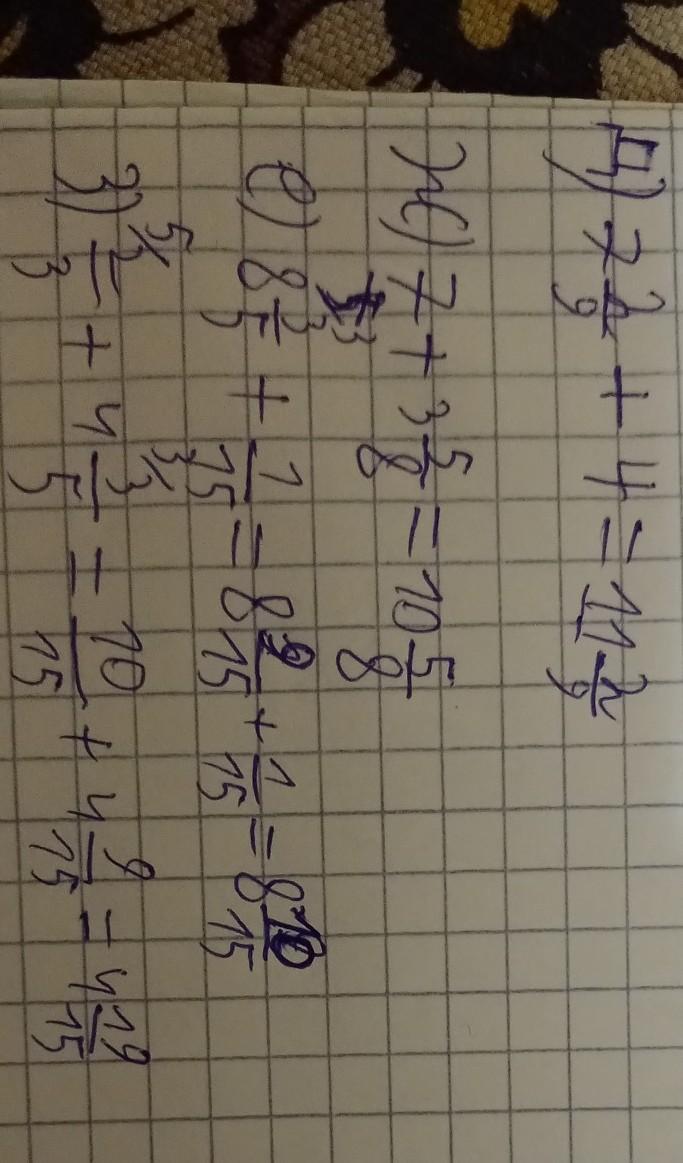 д) 7 2/9 + 4 = 11 2/9
ж) 7 + 3 5/8 = 10 5/8
е) 8 3/5 + 1/15 = 8 9/15 + 1/15 = 8 10/15
з) 2/3 + 4 3/5 = 10/15 + 4 9/15 = 4 19/15